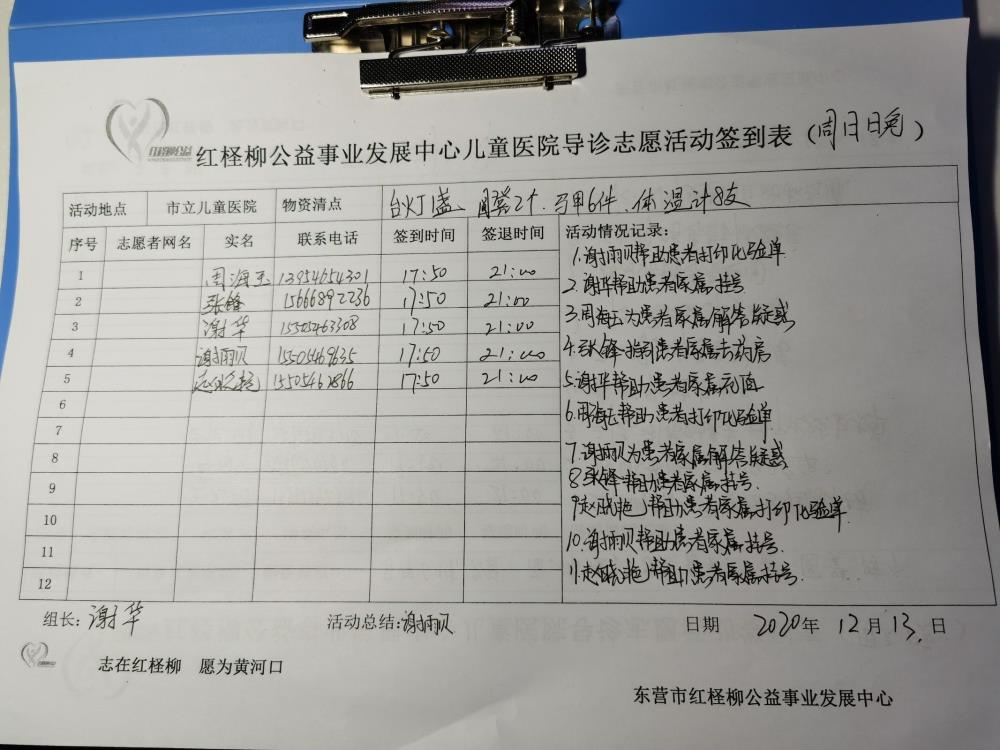 红柽柳公益事业发展中心儿童医院导诊志愿活动签到表（周日日晚）
活动地点 市立儿童医院 物资清点 台灯1盏、 2个、马甲6件、体温计8支
序号 志愿者网名 实名 联系电话 签到时间 签退时间 活动情况记录：
1 周海玉 13954654301 17:50 21:00
2 张锋 15666892236 17:50 21:00
3 谢华 15505463308 17:50 21:00
4 谢雨贝 15505469635 17:50 21:00
5 赵晓艳 17:50 21:00
6
7
8
9
10
11
12
1.谢雨贝帮助患者打印化验单
2.谢华帮助患者家属挂号
3.周海玉为患者家属解答疑惑
4.张锋指引患者家属去药房
5.谢华帮助患者家属充值
6.周海玉帮助患者打印化验单
7.谢雨贝为患者家属解答疑惑
8.张锋帮助患者家属挂号.
9.赵晓艳帮助患者家属打印化验单.
10.谢雨贝帮助患者家属挂号.
11.赵晓艳帮助患者家属挂号.
组长：谢华 活动总结：谢雨贝 日期 2020年 12月13日
志在红柽柳 愿为黄河口
东营市红柽柳公益事业发展中心